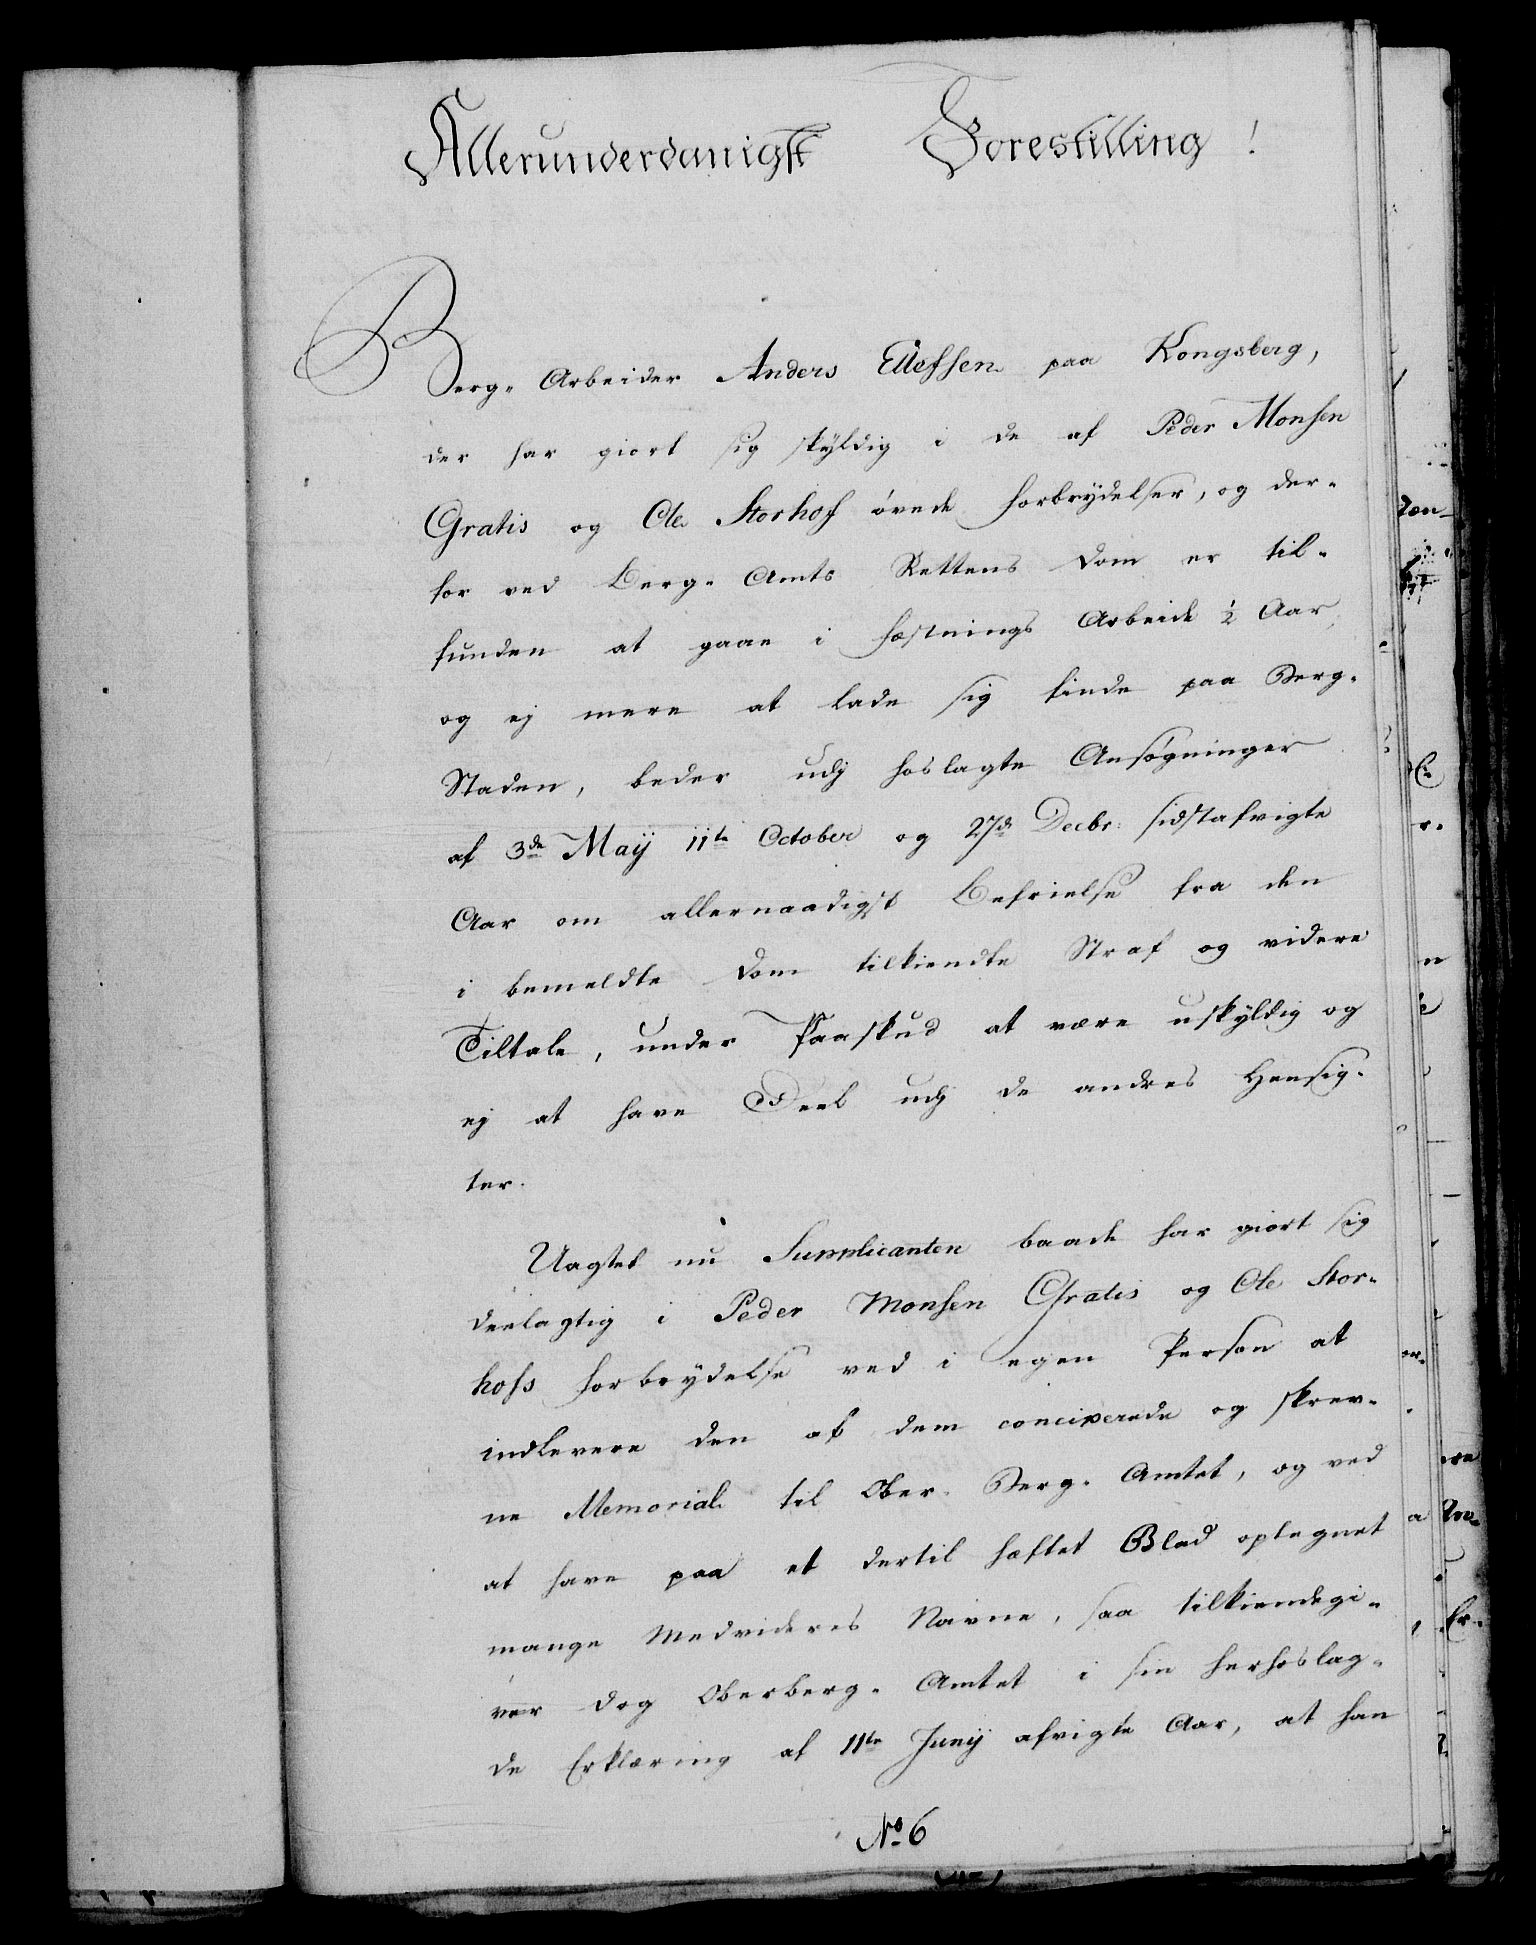 Allerunderdanigst Forestilling!
Berg-Arbeider Anders Ellefsen paa Kongsberg,
der har giort sig skyldig i de af Peder Monsen
Gratis og Ole Storhof øvede Forbrydelser, og der-
for ved Berg-Amts Rettens Dom er til-
funden at gaae i Fæstnings Arbeide ½ Aar,
og ej mere at lade sig finde paa Berg-
Staden, beder udj hoslagte Ansøgninger
af 3de Maij 11te October og 27de Decbr. sidstafvigte
Aar om allernaadigst Befrielse fra den
i bemeldte Dom tilkiendte Straf og videre
Tiltale, under Paaskud at være uskyldig og
ej at have Deel udj de andres Hensig-
ter.
Uagtet nu Supplicanten baade har giort sig
deelagtig i Peder Monsen Gratis og Ole Stor-
hofs Forbrydelse ved i egen Person at
indlevere den af dem conciperede og skrev-
ne Memorial til Ober-Berg-Amtet, og ved
at have paa et dertil hæftet Blad optegnet
mange Medvideres Navne, saa tilkiendegi-
ver dog Oberberg-Amtet i sin herhoslag-
de Erklæring af 11te Junij afvigte Aar, at han
No 6